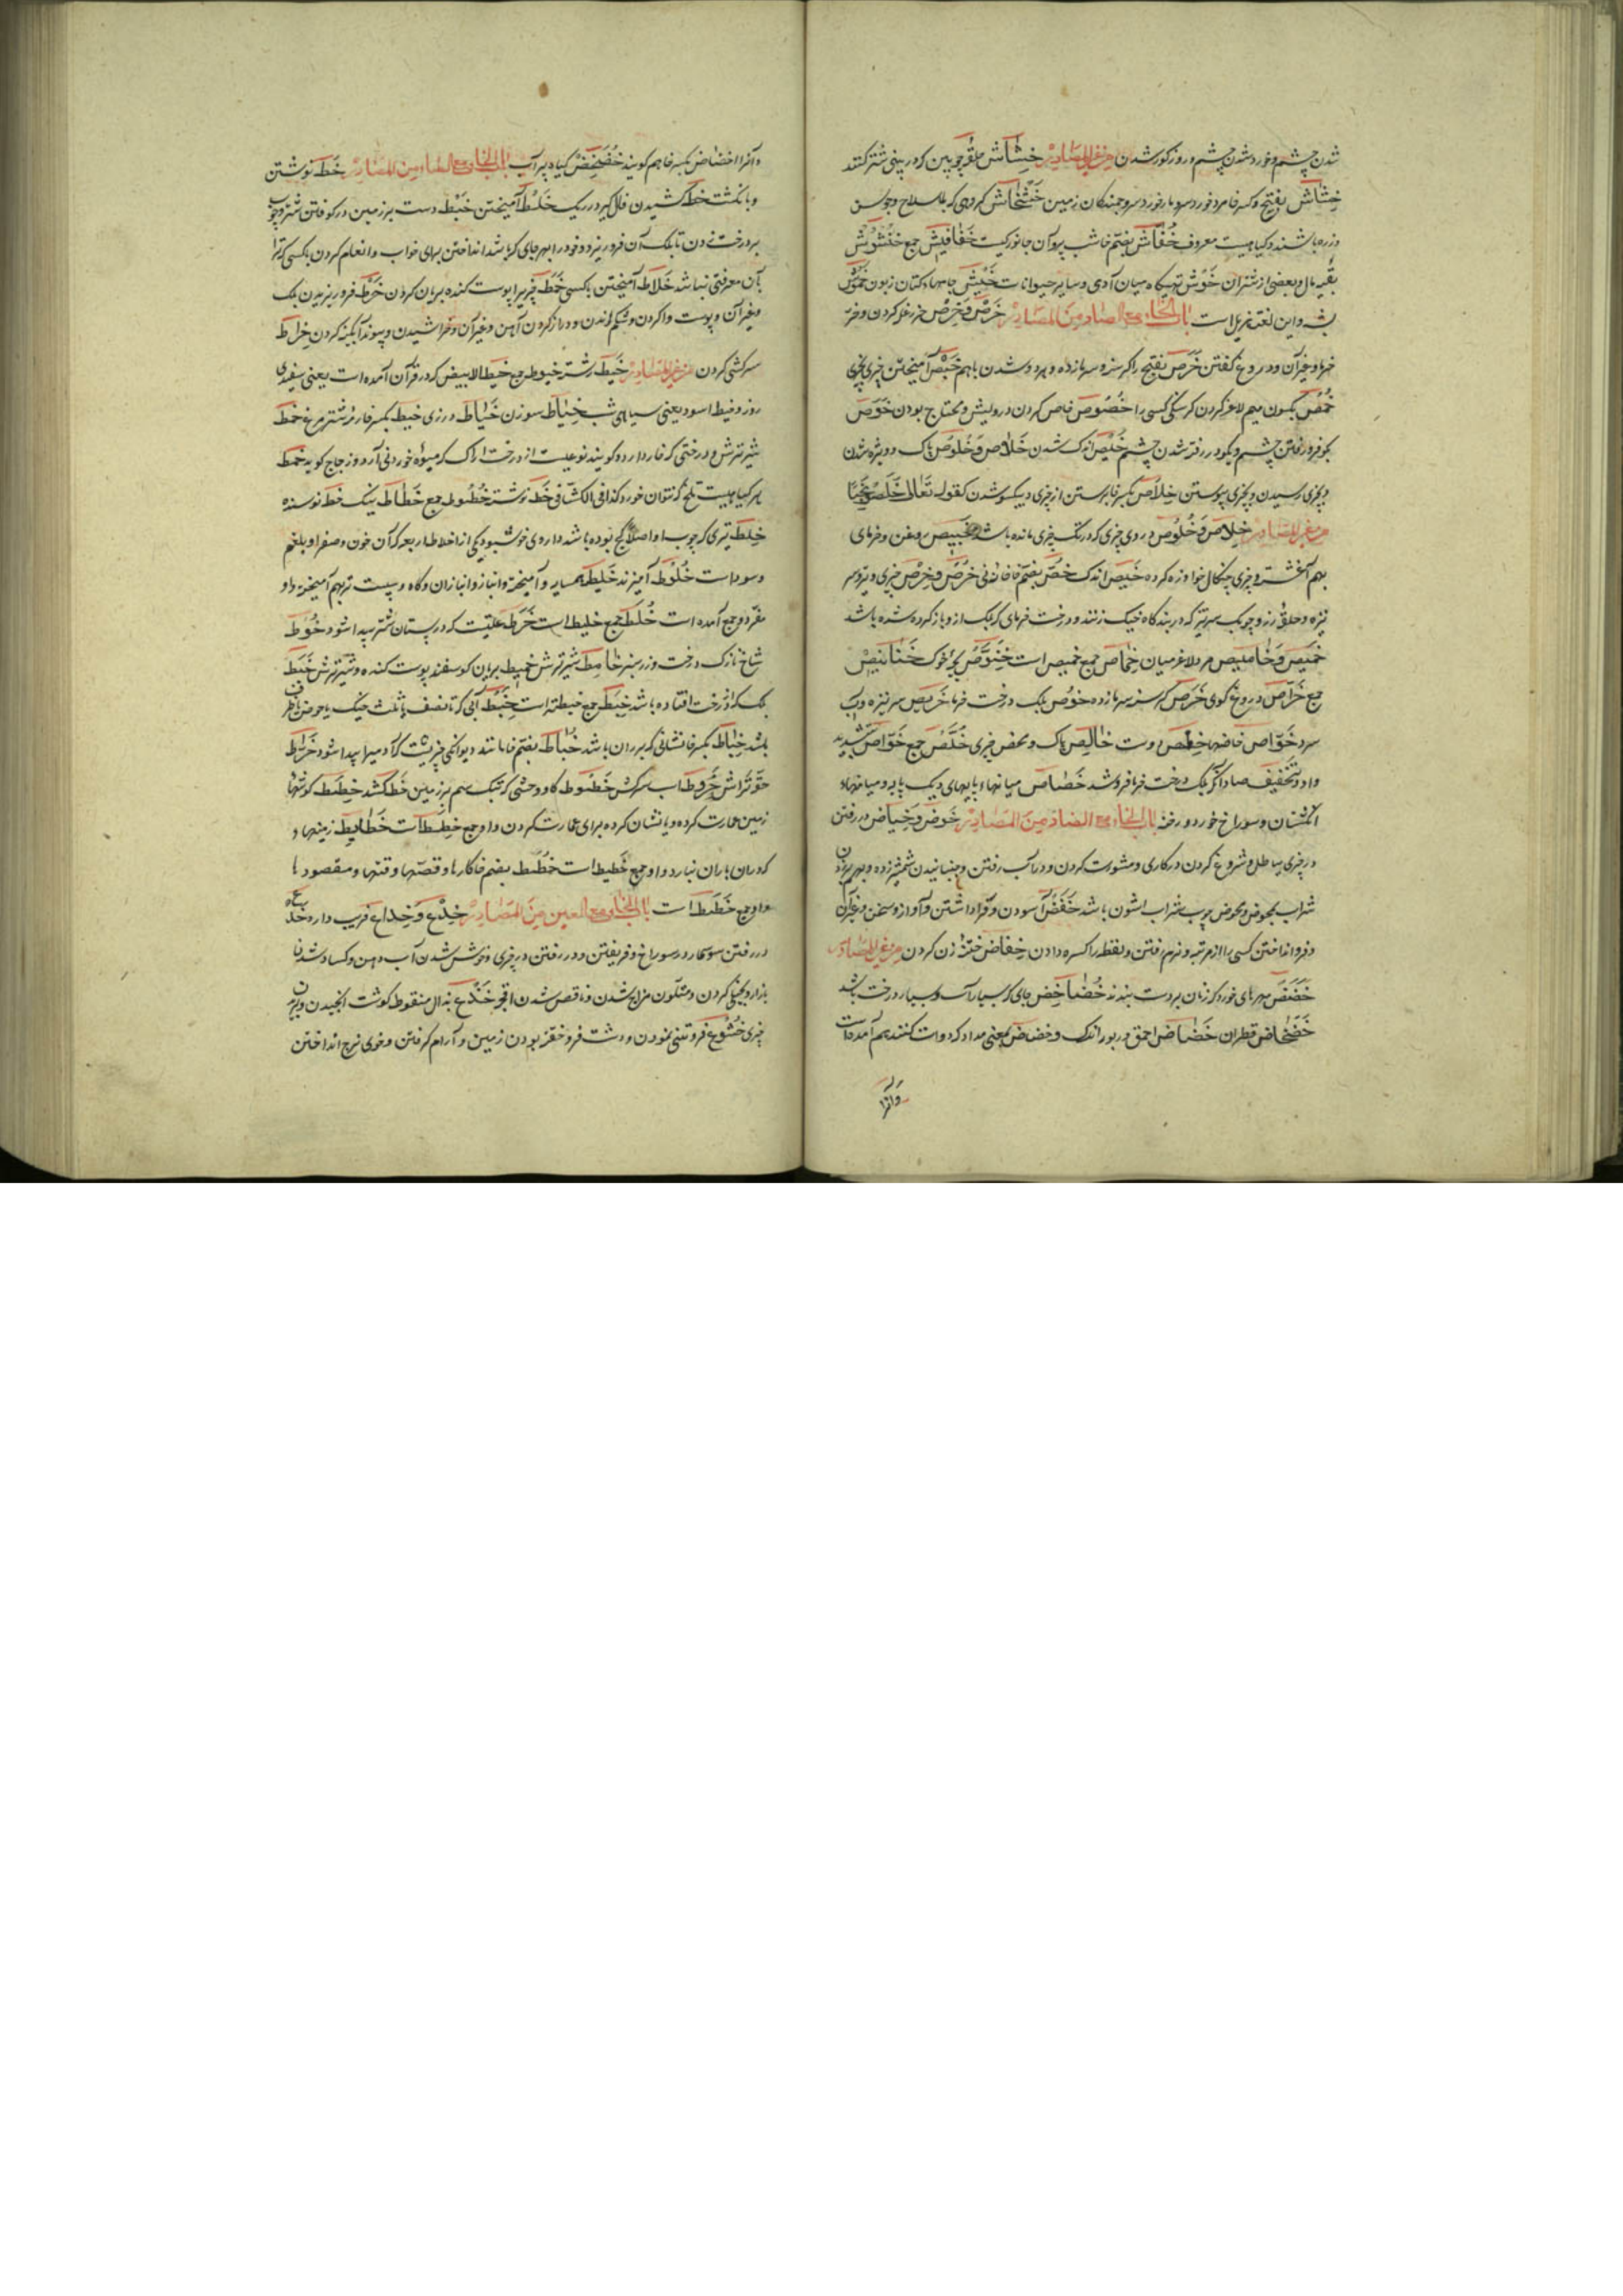 شدن چشم و خورد شدن چشم و روز کور شدن من غیر المصادر خِشاش حلقه چوبین که در بینی شتر کنند
خشاش بفتح و کسر خا مرد خورد سر و مار خورد سر و جمندگان زمین خشخاش گروهی که با سلاح و جوشن
و زره باشند و گیاهیست معروف خُفّاش بضم خا شب پره و آن جانوریست خفافیش جمع خنشوش
بقیه مال و بعضی از شتران خَوش تهیگاه میان آدمی و سایر حیوانات خَیش جامهاء کتان زبون خموش
پشه و این لغت هذیل است باب الخاء مع الصاد من المصادر خَرص و خِرص حزر کردن
خرما و غیر آن و دروغ گفتن خَرَص بفتح را گرسنه و سرمازده و بردو شدن باهم خَبص آمیختن چیزی بچیزی
خمص بسکون میم لاغر کردن گرسنگی کسی را خُصُوص خاص کردن درویش و محتاج بودن خَوَص
بگو فرو رفتن چشم و بگو در رفته شدن چشم خُلیص اندک شدن خَلاص و خُلوص پاک و ویژه شدن
و بچیزی رسیدن و بچیزی پیوستن خِلاص بکسر خا برستن از چیزی و بیکسو شدن کقوله تعالی خلصوا نجیا
من غیر المصادر خِلاص و خُلُوص دردی چیزی که در تک چیزی مانده باشد خبیص روغن و خرمای
بهم آغشته و چیزی چنگال خوا و زه کرده خَیص اندک خصّ بضم خا خانه نی خرص و خِرص چیزی و نیزه سر
نیزه و حلقه زر و چوبک سر تیز که در بندگاه خیک زنند و درخت خرمای که برگ از و باز کرده شده باشد
خمیص و خامیص مرد لاغر میان خِماص جمع خمیص است خِنَّوص بچه خوک خنانیص
جمع خَرّاص دروغ گوی خَرِص گرسنه سرمازده خوُص برگ درخت خرما خریص سر نیزه و آب
سرد خَوّاص خاصها خِلص دوست خالِص پاک و محض چیزی خُلَّص جمع خَوّاص بتشدید
واو و تخفیف صاد آنکه برگ درخت خرما فروشد خَصاص میانهاء پایهای دیگ پایه و میانهاء
انگشتان و سوراخ خورد و رخنه باب الخاء مع الضاد من المصادر خوض و خِیاض در رفتن
در چیزی بباطل و شروع کردن در کاری و مشورت کردن و در آب رفتن و جنبانیدن شمشیر زده و بهم بر زدن
شراب بمخوض و مخوض چوب شراب اشون باشد خَفَض آسودن و قرار داشتن و آواز و سخن و غیر آن
و فرو انداختن کسی را از مرتبه و نرم رفتن و نقطه را کسره دادن خِفاض ختنه زن کردن من غیر المصادر
خَضَض مهرهای خورد که زنان بر دست بندند خُضاخِض جای که بسیار آب و بسیار درخت باشد
خَضخاض قطران خَضاض احمق و زیور اندک و خضاض بمعنی مداد که دوات کنند هم آمده است
و آنرا
و آنرا خضاض بکسر خا هم گویند خُضَخِض گیاه پر آب باب الخاء مع الطاء من المصادر خَط نوشتن
و بانگشت خط کشیدن فال گیر در ریک خَلط آمیختن خَبط دست بر زمین در کوفتن شتر و چوب
بر درخت زدن تا برگ آن فرو ریزد و خود را بهر جای که باشد انداختن برای خواب و انعام کردن با کسی که ترا
بآن معرفتی نباشد خِلاط آمیختن با کسی خَمط چیزی را پوست کنده بریان کردن خَرط فرو ریزیدن برگ
و غیر آن و پوست وا کردن و شکم راندن و دراز کردن آهن و غیر آن و خراشیدن و پیوند آبگینه کردن خِراط
سرکشی کردن من غیر المصادر خَیط رشته خیوط جمع خیط الابیض که در قرآن آمده است یعنی سفیدی
روز و خیط اسود یعنی سیاهی شب خِیاط سوزن خَیّاط درزی خیط بکسر خا رمه شترمرغ خمط
شیر ترش و درختی که خار دارد و گویند نوعیست از درخت اراک که میوه خوردنی آرد و زجاج گوید خمط
هر گیاهیست تلخ که نتوان خورد کذا فی الکشّاف خَط نوشته خُطُوط جمع خَطّاط نیک خط نویسنده
خِلط تیری که چوب او اصلاً کج بوده باشد و داروی خوشبو و یکی از اخلاط اربعه که آن خون و صفرا و بلغم
و سودا است خُلُوط آمیزند خَلیط همسایه و آمیخته و انباز و انبازان و کاه و سپست تر بهم آمیخته و او
مفرد و جمع آمده است خُلط جمع خلیط است خَرَط علتیست که در پستان شتر پیدا شود خُوط
شاخ نازک درخت و زر سبز خامِط شیر ترش خمیط بریان گوسفند پوست کنده و شیر ترش خَبَط
برگ که از درخت افتاده باشد خِبَط جمع خبطته است خِبَط آبی که تا نصف یا ثلث خیک یا حوض یا ظرف
باشد خِباط بکسر خا نشانی که بر ران باشد خُباط بضم خا مانند دیوانگی چیزیست که آدمی را پیدا شود خَرّاط
حقّه تراش خَرُوط اسب سرکش خَطُوط گاو وحشی که بتک سم بر زمین خط کشد خِطَط گوشهاء
زمین عمارت کرده و یا نشان کرده برای عمارت کردن و او جمع خِطّه است خَطایِط زمینهاء
که در آن باران نبارد و او جمع خَطیطه است خُطَط بضم خا کارها و قصّها و قضیها و مقصودها
و او جمع خُطّه است باب الخاء مع العین من المصادر خِدع و خِداع فریب دادن خَدع
در رفتن سوسمار در سوراخ و فریفتن و در رفتن در چیزی و خوش شدن آب دهن و کساد شدن
بازار و بخیلی کردن و متلون مزاج شدن و ناقص شدن خَذع بذال منقوط گوشت انجیدن و بریدن
چیزی خُشُوع فروتنی نمودن و دشت فرو خفته بودن زمین و آرام گرفتن و خوی نرخ انداختن